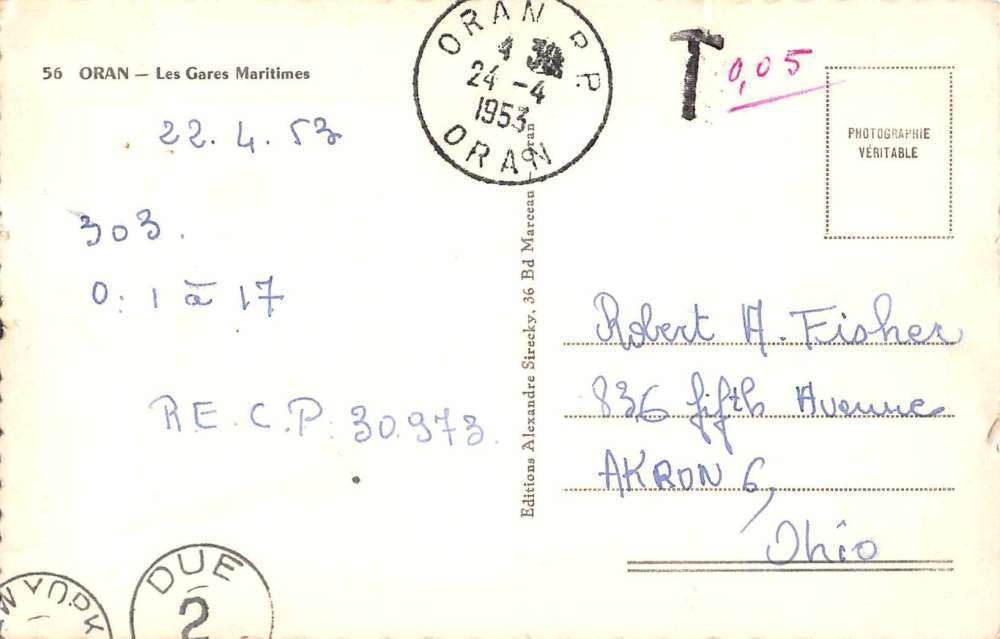 56 ORAN — Les Gares Maritimes
22.4.53
303.
0: 1 à 17
R.E.C.P. 30.973.
ORAN R.P.
4 30
24 -4
1953
ORAN
T
0,05
PHOTOGRAPHIE
VÉRITABLE
Editions Alexandre Sirecky, 36 Bd Marceau, Oran
Robert A. Fisher
836 fifth Avenue
AKRON 6,
Ohio
W YORK
DUE
2